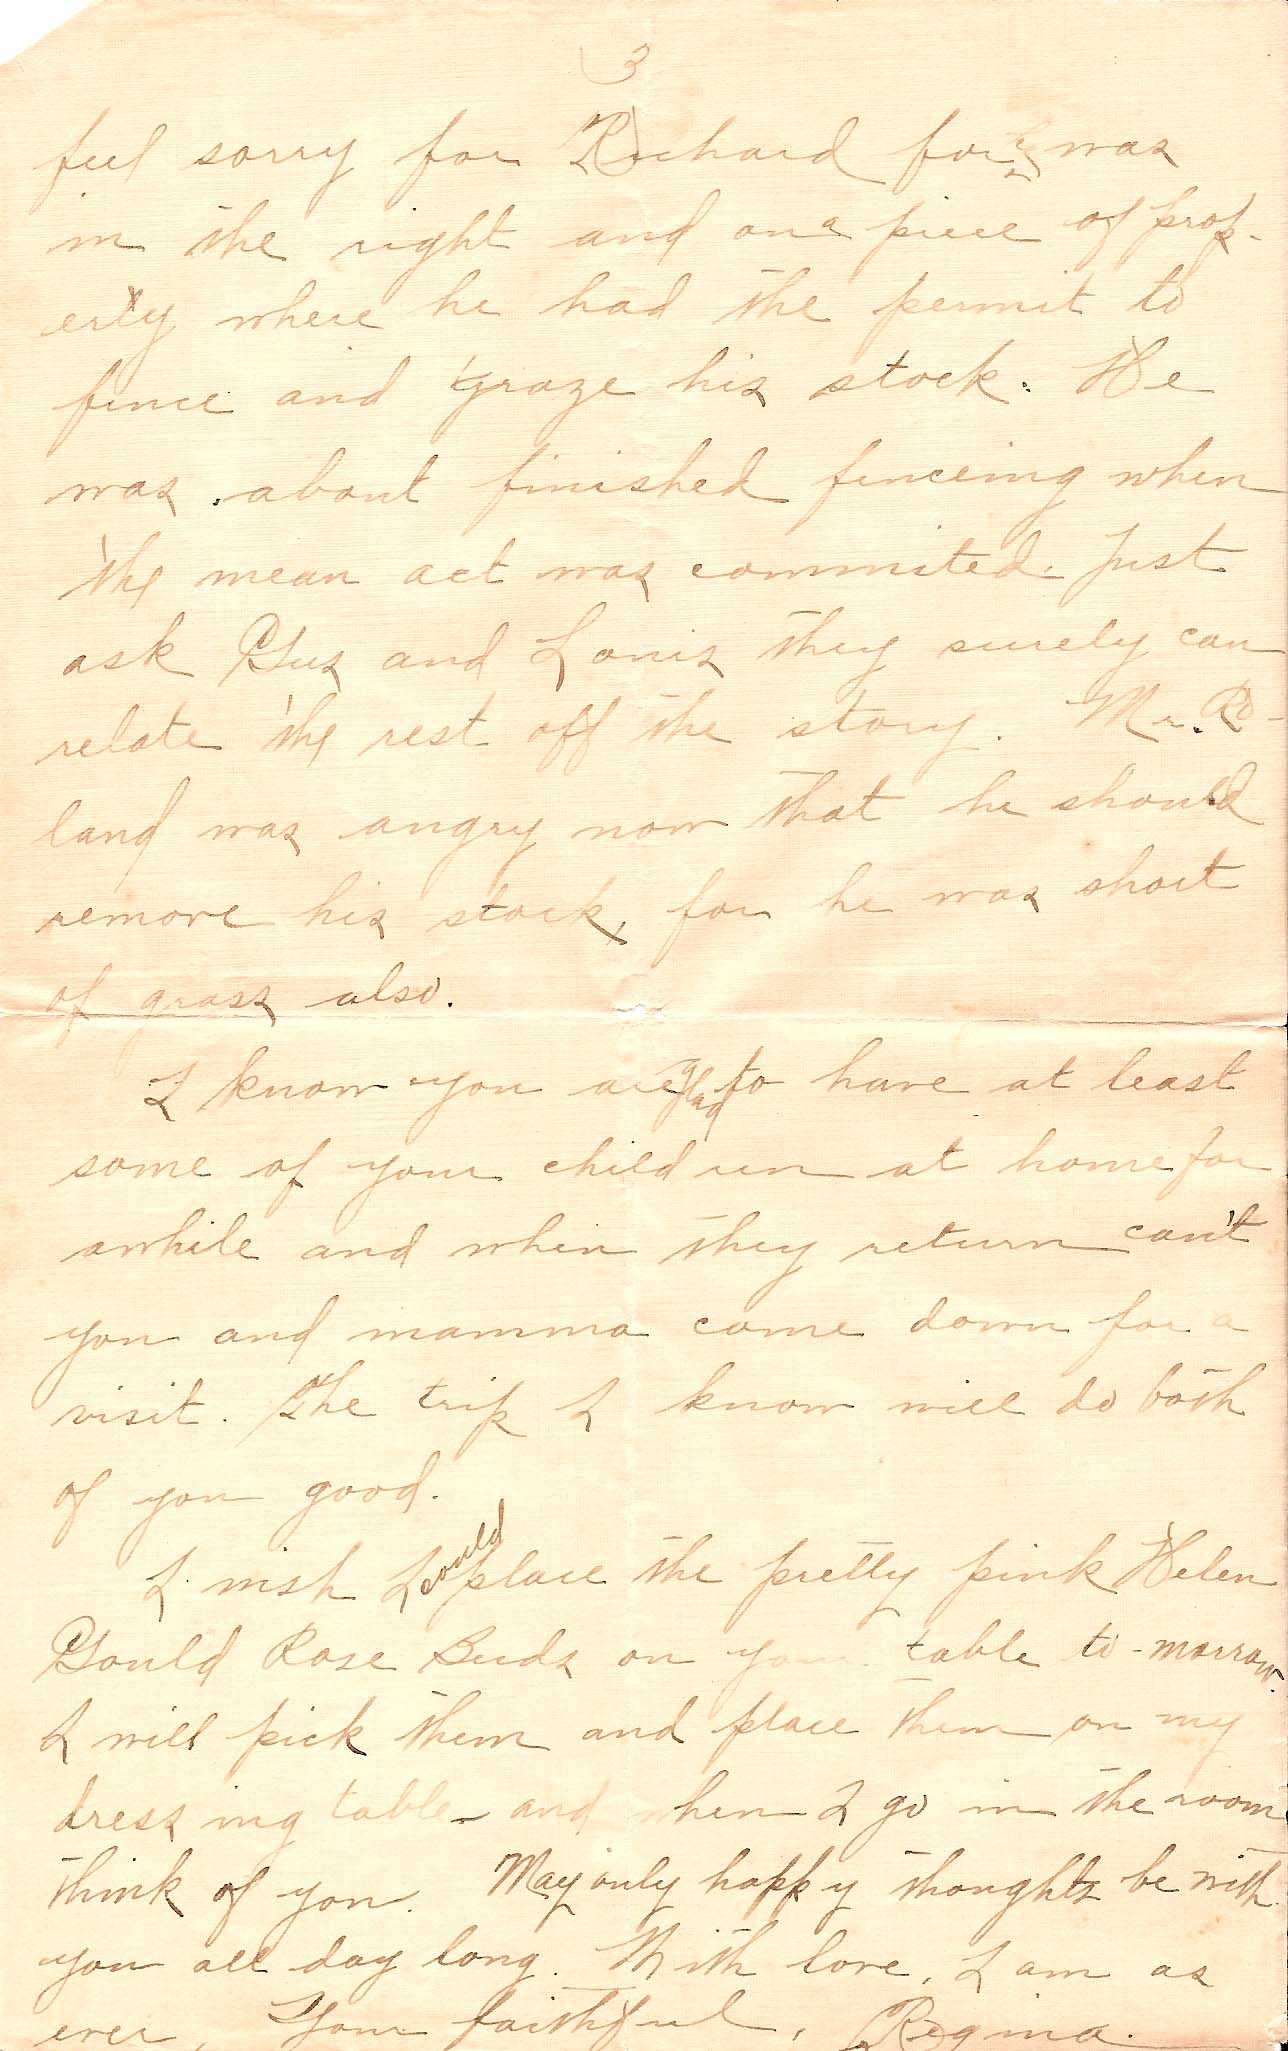 3
feel sorry for Richard for he was
in the right and on a piece of prop-
erty where he had the permit to
fence and graze his stock. He
was about finished fenceing when
the mean act was commited. Just
ask Gus and Louis they surely can
relate the rest off the story. Mr. Ro-
land was angry now that he should
remove his stock, for he was short
of grass also.
I know you are glad to have at least
some of your children at home for
awhile and when they return can't
you and mamma come down for a
visit. The trip I know will do both
of you good.
I wish I could place the pretty pink Helen
Gould Rose Buds on your table to-morrow.
I will pick them and place them on my
dressing table - and when I go in the room
think of you. May only happy thoughts be with
you all day long. With love, I am as
ever, Your faithful, Regina.